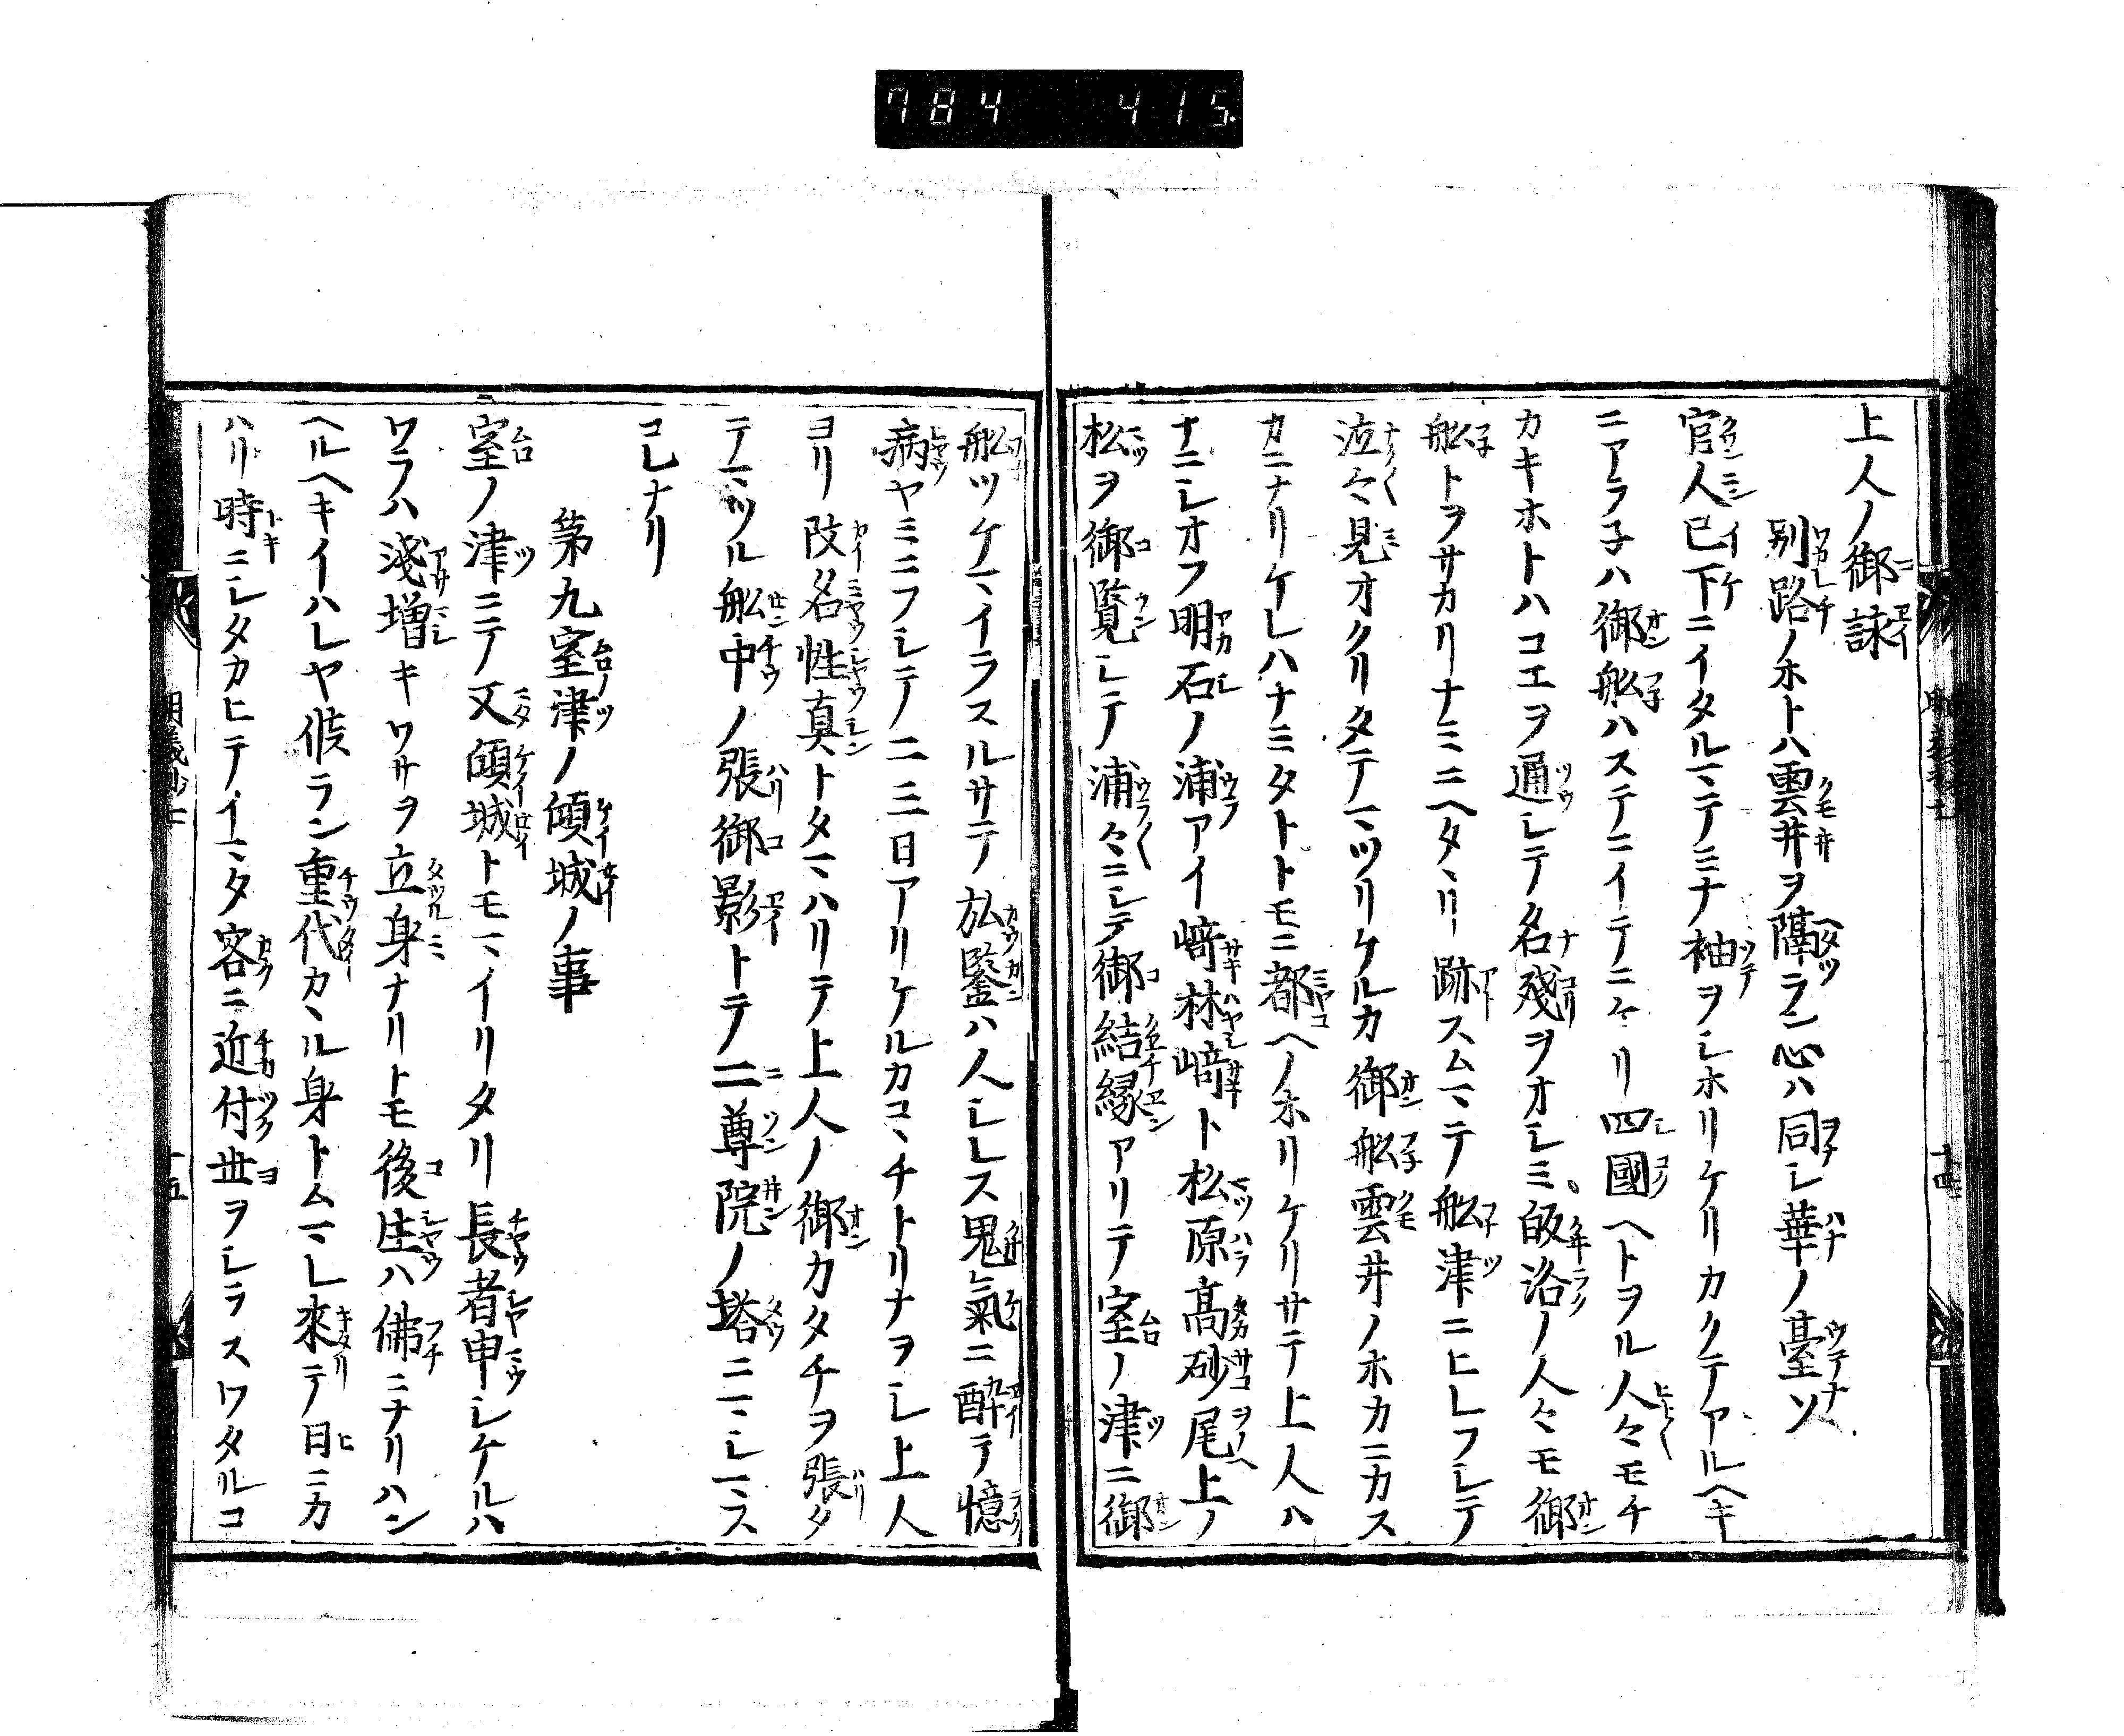 784 415.
上人ノ御詠
別路ノホトハ雲井ヲ隔ラン心ハ同シ華ノ臺ソ
官人已下ニイタルマテミナ袖ヲシホリケリカクテアルヘキ
ニアラ子ハ御舩ハステニイテニケリ四國ヘトヲル人々モチ
カキホトハコエヲ通シテ名殘ヲオシミ皈洛ノ人々モ御
舩トヲサカリナミニヘタヽリ跡スムマテ舩津ニヒレフシテ
泣々見オクリタテマツリケルカ御舩雲井ノホカニカス
カニナリケレハナミタトトモニ都ヘノホリケリサテ上人ハ
ナニシオフ明石ノ浦アイ﨑林﨑ト松原髙砂尾上ノ
松ヲ御覧シテ浦々ニシテ御結縁アリテ室ノ津ニ御
舩ツケマイラスルサテ㳒鑒ハ人シレス鬼氣ニ醉テ憶
病ヤミニフシテ二三日アリケルカコヽチトリナヲシ上人
ヨリ改名性真トタマハリテ上人ノ御カタチヲ張タ
テマツル舩中ノ張御影トテ二尊院ノ塔ニマシマス
コレナリ
第九室津ノ傾城ノ事
室ノ津ニテ又傾城トモマイリタリ長者申シケルハ
ワラハ淺増キワサヲ立身ナリトモ後生ハ佛ニナリハン
ヘルヘキイハレヤ候ラン重代カヽル身トムマレ來テ日ニカ
ハリ時ニシタカヒテイマタ客ニ近付世ヲシラスワタルコ